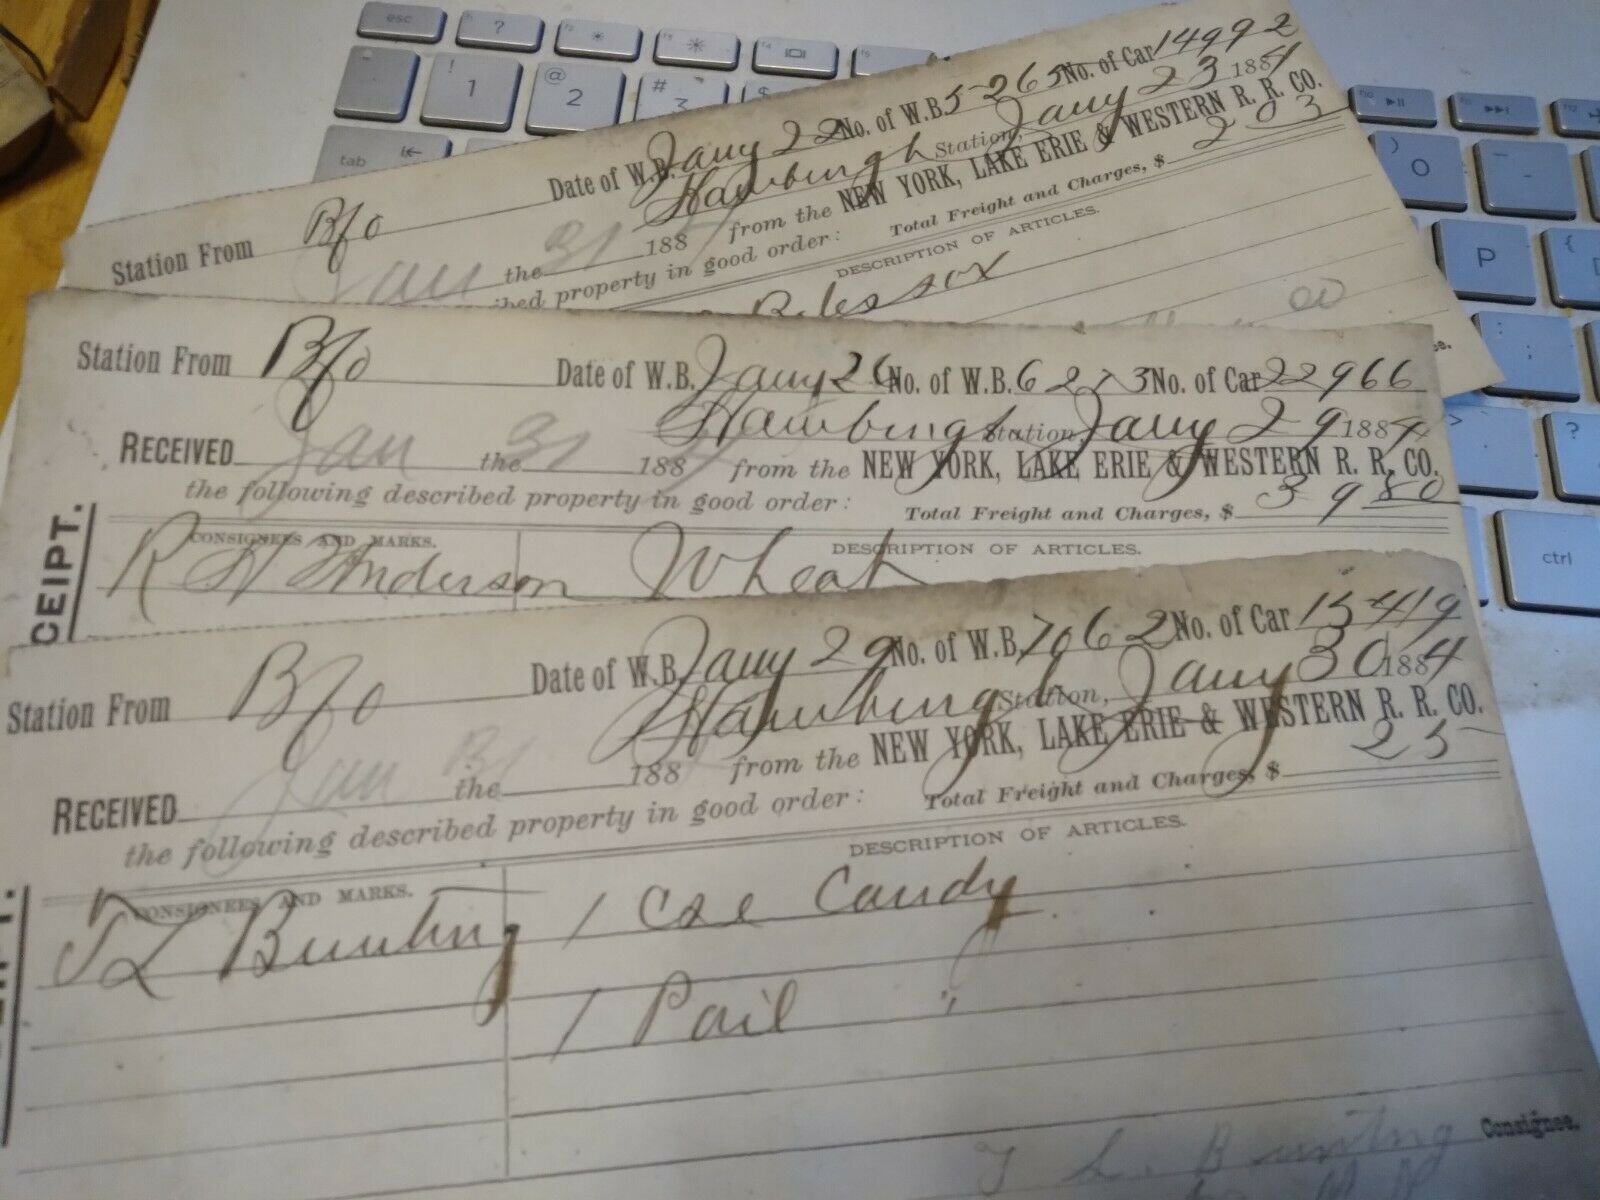 Station From Bfo Date of W.B. Jany 22 No. of W.B. 5265 No. of Car 14992
Hamburgh Station, Jany 23 1884
Jan the 31 188 from the NEW YORK, LAKE ERIE & WESTERN R. R. CO.
bed property in good order: Total Freight and Charges, $ 2 03
DESCRIPTION OF ARTICLES.
Station From Bfo Date of W.B. Jany 26 No. of W.B. 6273 No. of Car 22966
Hamburgh Station, Jany 29 1884
RECEIVED Jan the 31 188 4 from the NEW YORK, LAKE ERIE & WESTERN R. R. CO.
the following described property in good order: Total Freight and Charges, $ 39 80
CEIPT.
CONSIGNEES AND MARKS. DESCRIPTION OF ARTICLES.
R H Anderson Wheat
Station From Bfo Date of W.B. Jany 29 No. of W.B. 7062 No. of Car 15419
Hamburgh Station, Jany 30 1884
RECEIVED Jan the 31 188 from the NEW YORK, LAKE ERIE & WESTERN R. R. CO.
the following described property in good order: Total Freight and Charges, $ 25
CONSIGNEES AND MARKS. DESCRIPTION OF ARTICLES.
T L Bunting 1 Cse Candy
1 Pail "
T L. Bunting Consignee.
esc
?
! 1
@ 2
# 3
$
tab
O
P
ctrl